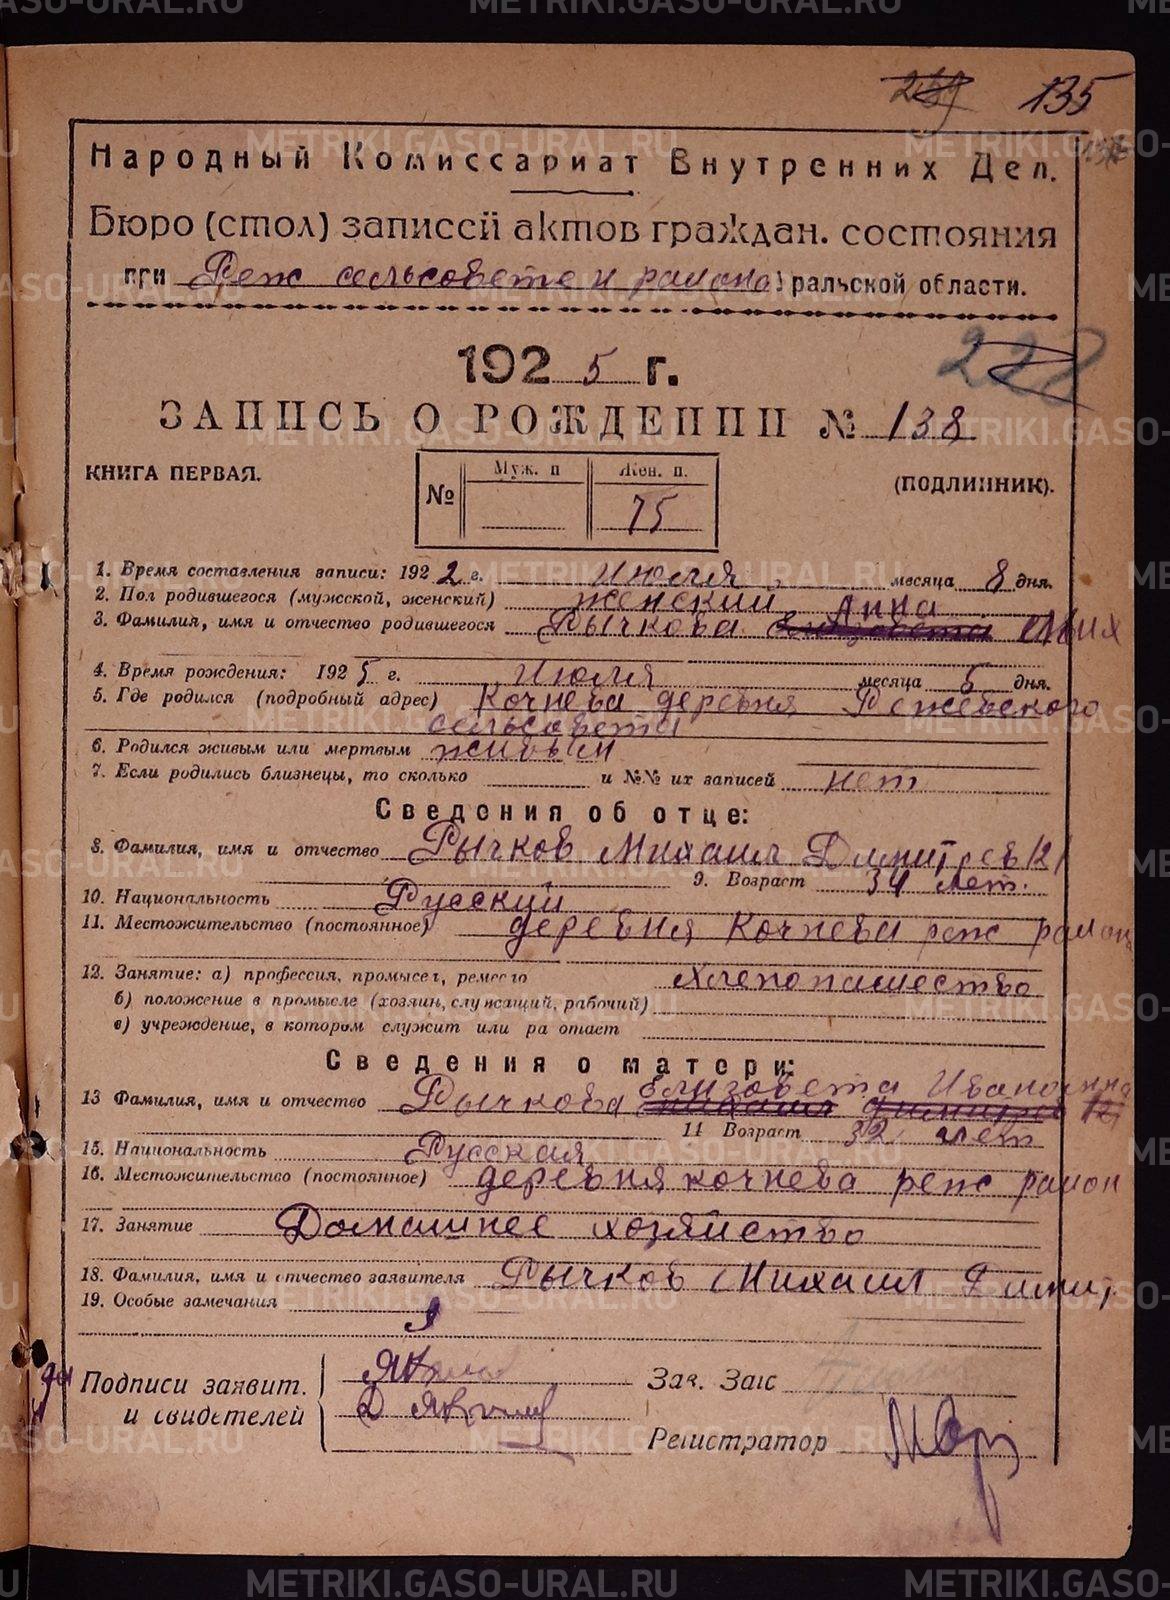 METRIKI.GASO-URAL.RU
135
Народный Комиссариат Внутренних Дел.
Бюро (стол) записей актов граждан. состояния
при Реж сельсовете и района Уральской области.
228
1925 г.
ЗАПИСЬ О РОЖДЕНИИ № 138
КНИГА ПЕРВАЯ.
№ Муж. п Жен. п.
75
(ПОДЛИННИК).
1. Время составления записи: 1922 г. Июля месяца 8 дня.
2. Пол родившегося (мужской, женский) женский
Анна
3. Фамилия, имя и отчество родившегося Рычкова Елизовета Мих
4. Время рождения: 1925 г. Июля месяца 5 дня.
5. Где родился (подробный адрес) Кочнева деревня Режевского
сельсовета
6. Родился живым или мертвым живым
7. Если родились близнецы, то сколько и №№ их записей нет
Сведения об отце:
8. Фамилия, имя и отчество Рычков Михаил Димитрев
9. Возраст 34 лет.
10. Национальность Русский
11. Местожительство (постоянное) деревня Кочнева реж район
12. Занятие: а) профессия, промысел, ремесло Хлепопашество
б) положение в промысле (хозяин, служащий, рабочий)
в) учреждение, в котором служит или работает
Сведения о матери:
Елизовета Ивановна
13 Фамилия, имя и отчество Рычкова Михаил Димитрев
14 Возраст 32 лет
15. Национальность Русская
16. Местожительство (постоянное) деревня кочнева реж район
17. Занятие Домашнее хозяйство
18. Фамилия, имя и отчество заявителя Рычков Михаил Димит,
19. Особые замечания
Подписи заявит.
и свидетелей
Зав. Загс
Регистратор